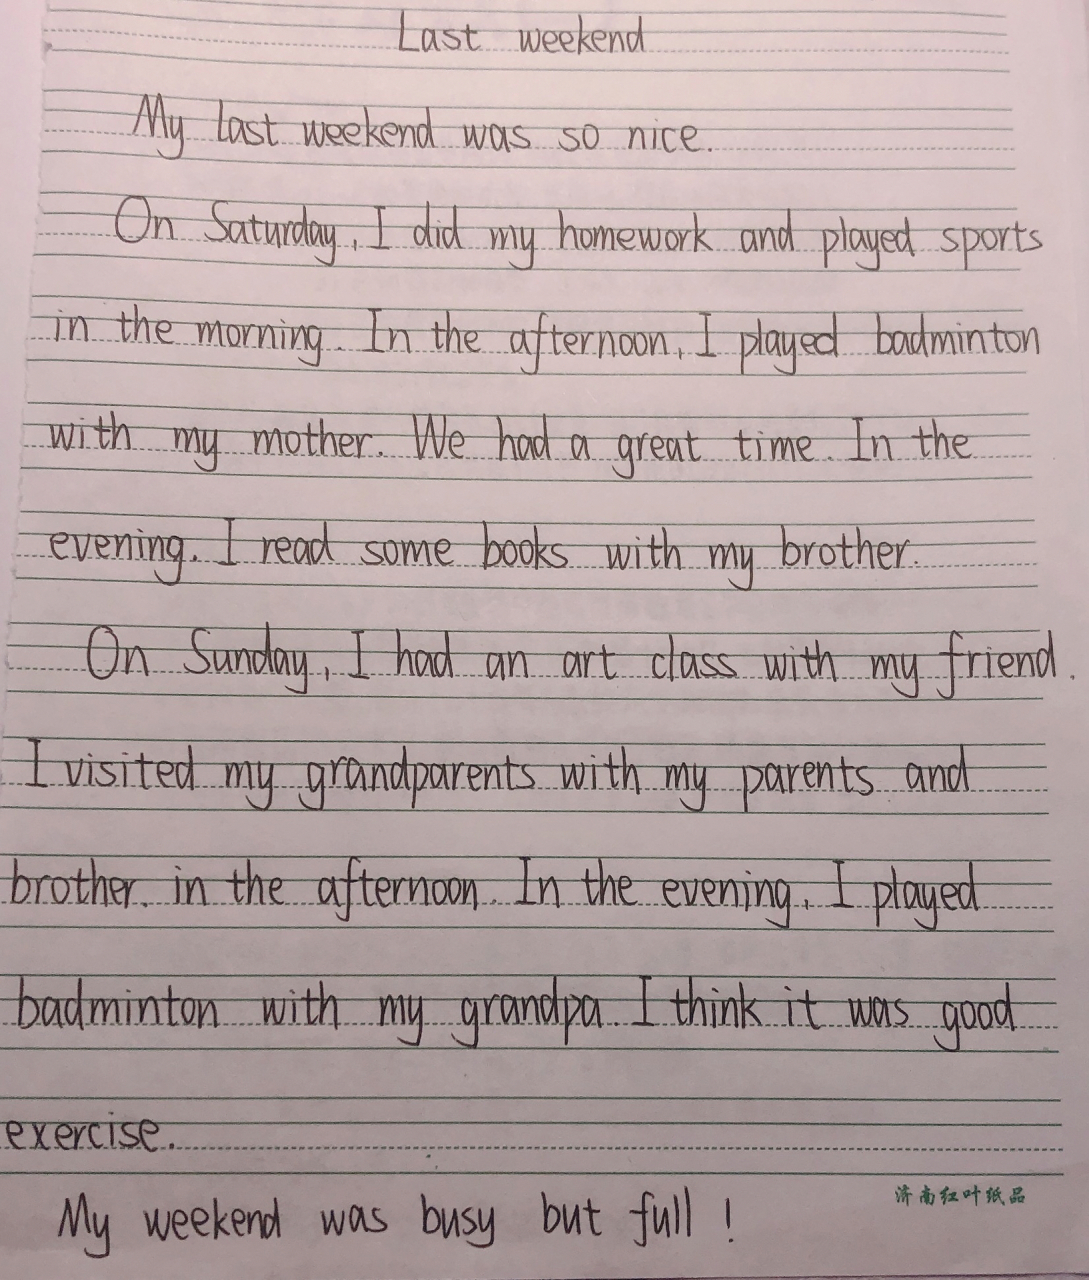 Last weekend
My last weekend was so nice.
On Saturday, I did my homework and played sports
in the morning. In the afternoon, I played badminton
with my mother. We had a great time. In the
evening. I read some books with my brother.
On Sunday, I had an art class with my friend.
I visited my grandparents with my parents and
brother. in the afternoon. In the evening, I played
badminton with my grandpa. I think it was good
exercise.
济南红叶纸品
My weekend was busy but full!